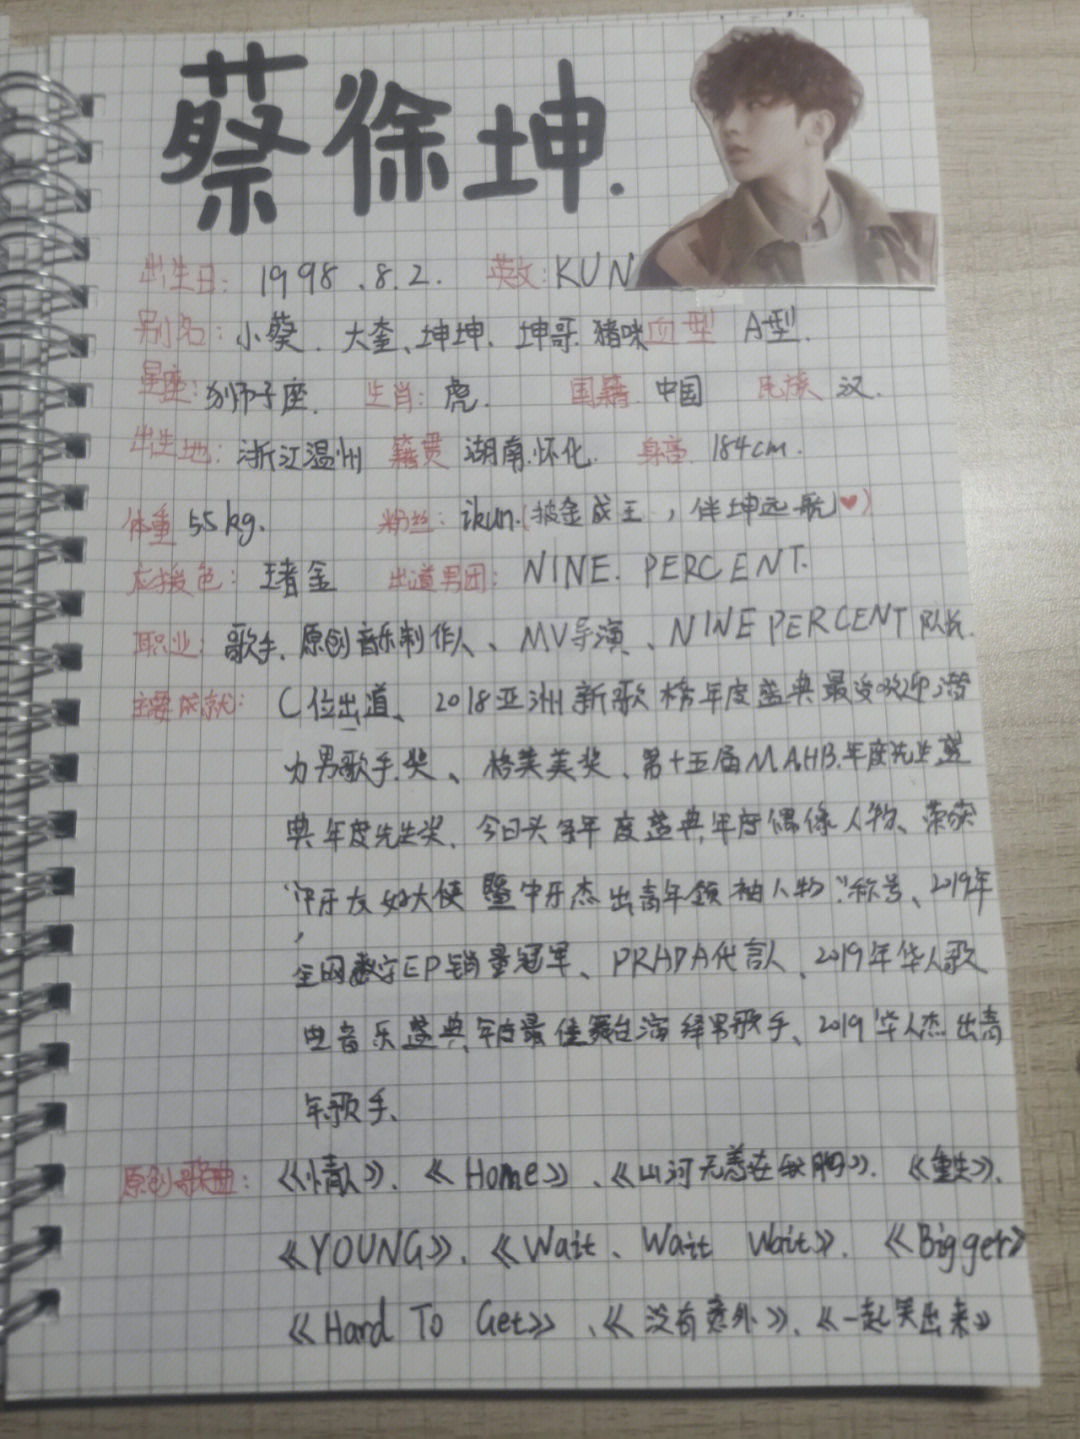 蔡徐坤.
出生日: 1998.8.2. 英文: KUN
别名: 小蔡、大奎、坤坤、坤哥 猪咪 血型 A型.
星座: 狮子座. 生肖: 虎. 国籍 中国 民族 汉.
出生地: 浙江温州 籍贯 湖南怀化. 身高 184cm.
体重 55kg. 粉丝: ikun.(披金成王，伴坤远航♥)
应援色: 王者金 出道男团: NINE. PERCENT.
职业: 歌手、原创音乐制作人、MV导演、NINE PERCENT 队长.
主要成就: C位出道、2018亚洲新歌榜年度盛典最受欢迎潜
力男歌手奖、格莱美奖、第十五届MAHB.年度先生盛
典年度先生奖、今日头条年度盛典年度偶像人物、荣获
“中牙友好大使暨中牙杰出青年领袖人物”称号、2019年
全网数字EP销量冠军、PRADA代言人、2019年华人歌
曲音乐盛典年度最佳舞台演绎男歌手、2019华人杰出青
年歌手、
原创歌曲: 《情人》、《Home》、《山河无恙在我胸》、《重生》、
《YOUNG》、《Wait、Wait Wait》、《Bigger》
《Hard To Get》、《没有意外》、《一起笑出来》